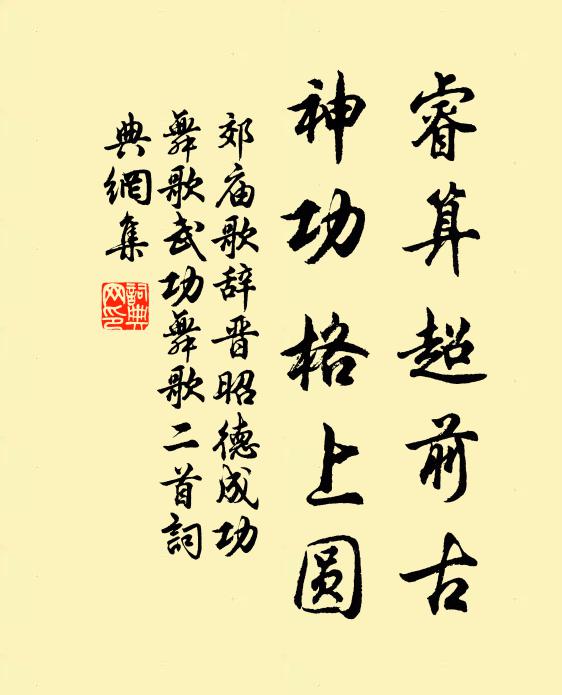 睿算超前古
神功格上圆
郊庙歌辞晋昭德成功
舞歌武功舞歌二首詞
典網集
詞典
网印